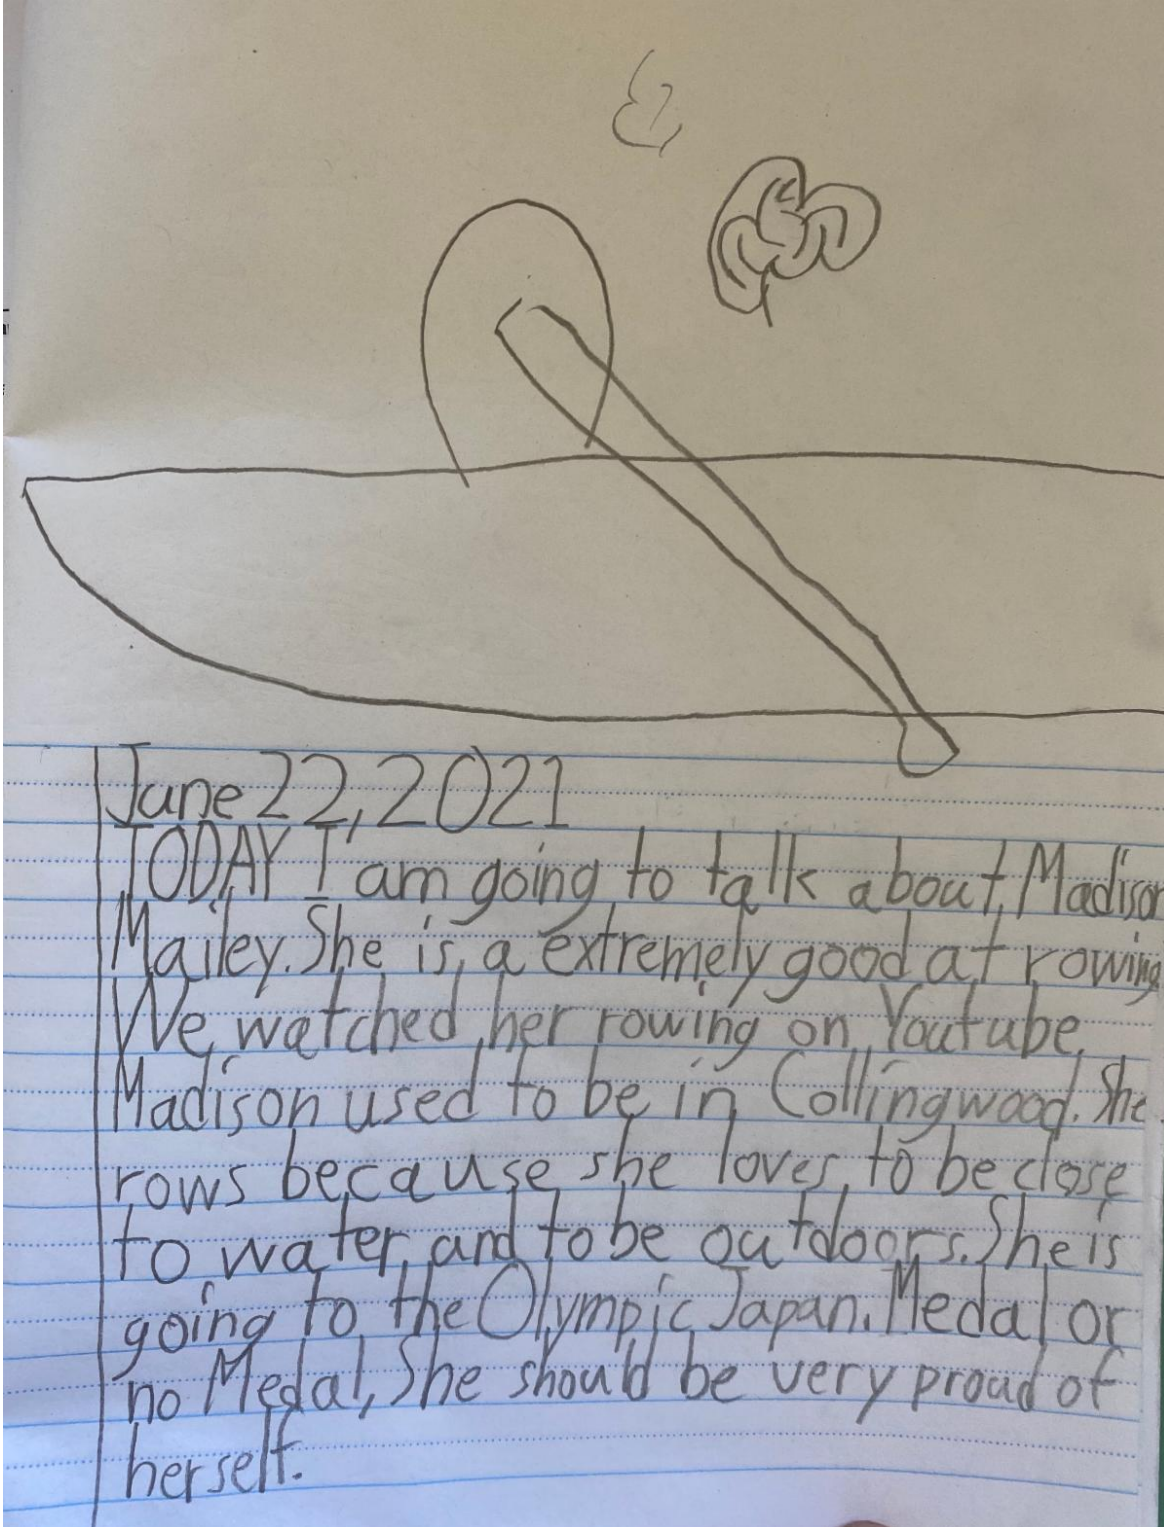 June 22, 2021
TODAY I am going to talk about Madison
Mailey. She is a extremely good at rowing
We watched her rowing on Youtube.
Madison used to be in Collingwood. She
rows because she loves to be close
to water and to be outdoors. She is
going to the Olympic Japan. Medal or
no Medal, She should be very proud of
herself.